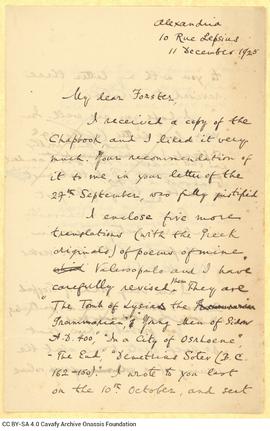 Alexandria
10 Rue Lepsius
11 December 1925
My dear Forster,
I received a copy of the
Chapbook and I liked it very
much. Your recommendation of
it to me in your letter of the
27th September, was fully justified
I enclose five more
translations (with the Greek
originals) of poems of mine
Valassopoulo and I have
carefully revised them. They are
"The Tomb of Lysias the
Grammarian", "Young Men of Sidon
A.D. 400," "In a City of Osrhoene"
"The End," "Demetrius Soter (B.C.
162-150)." I wrote to you last
on the 10th October, and sent
CC BY-SA 4.0 Cavafy Archive Onassis Foundation